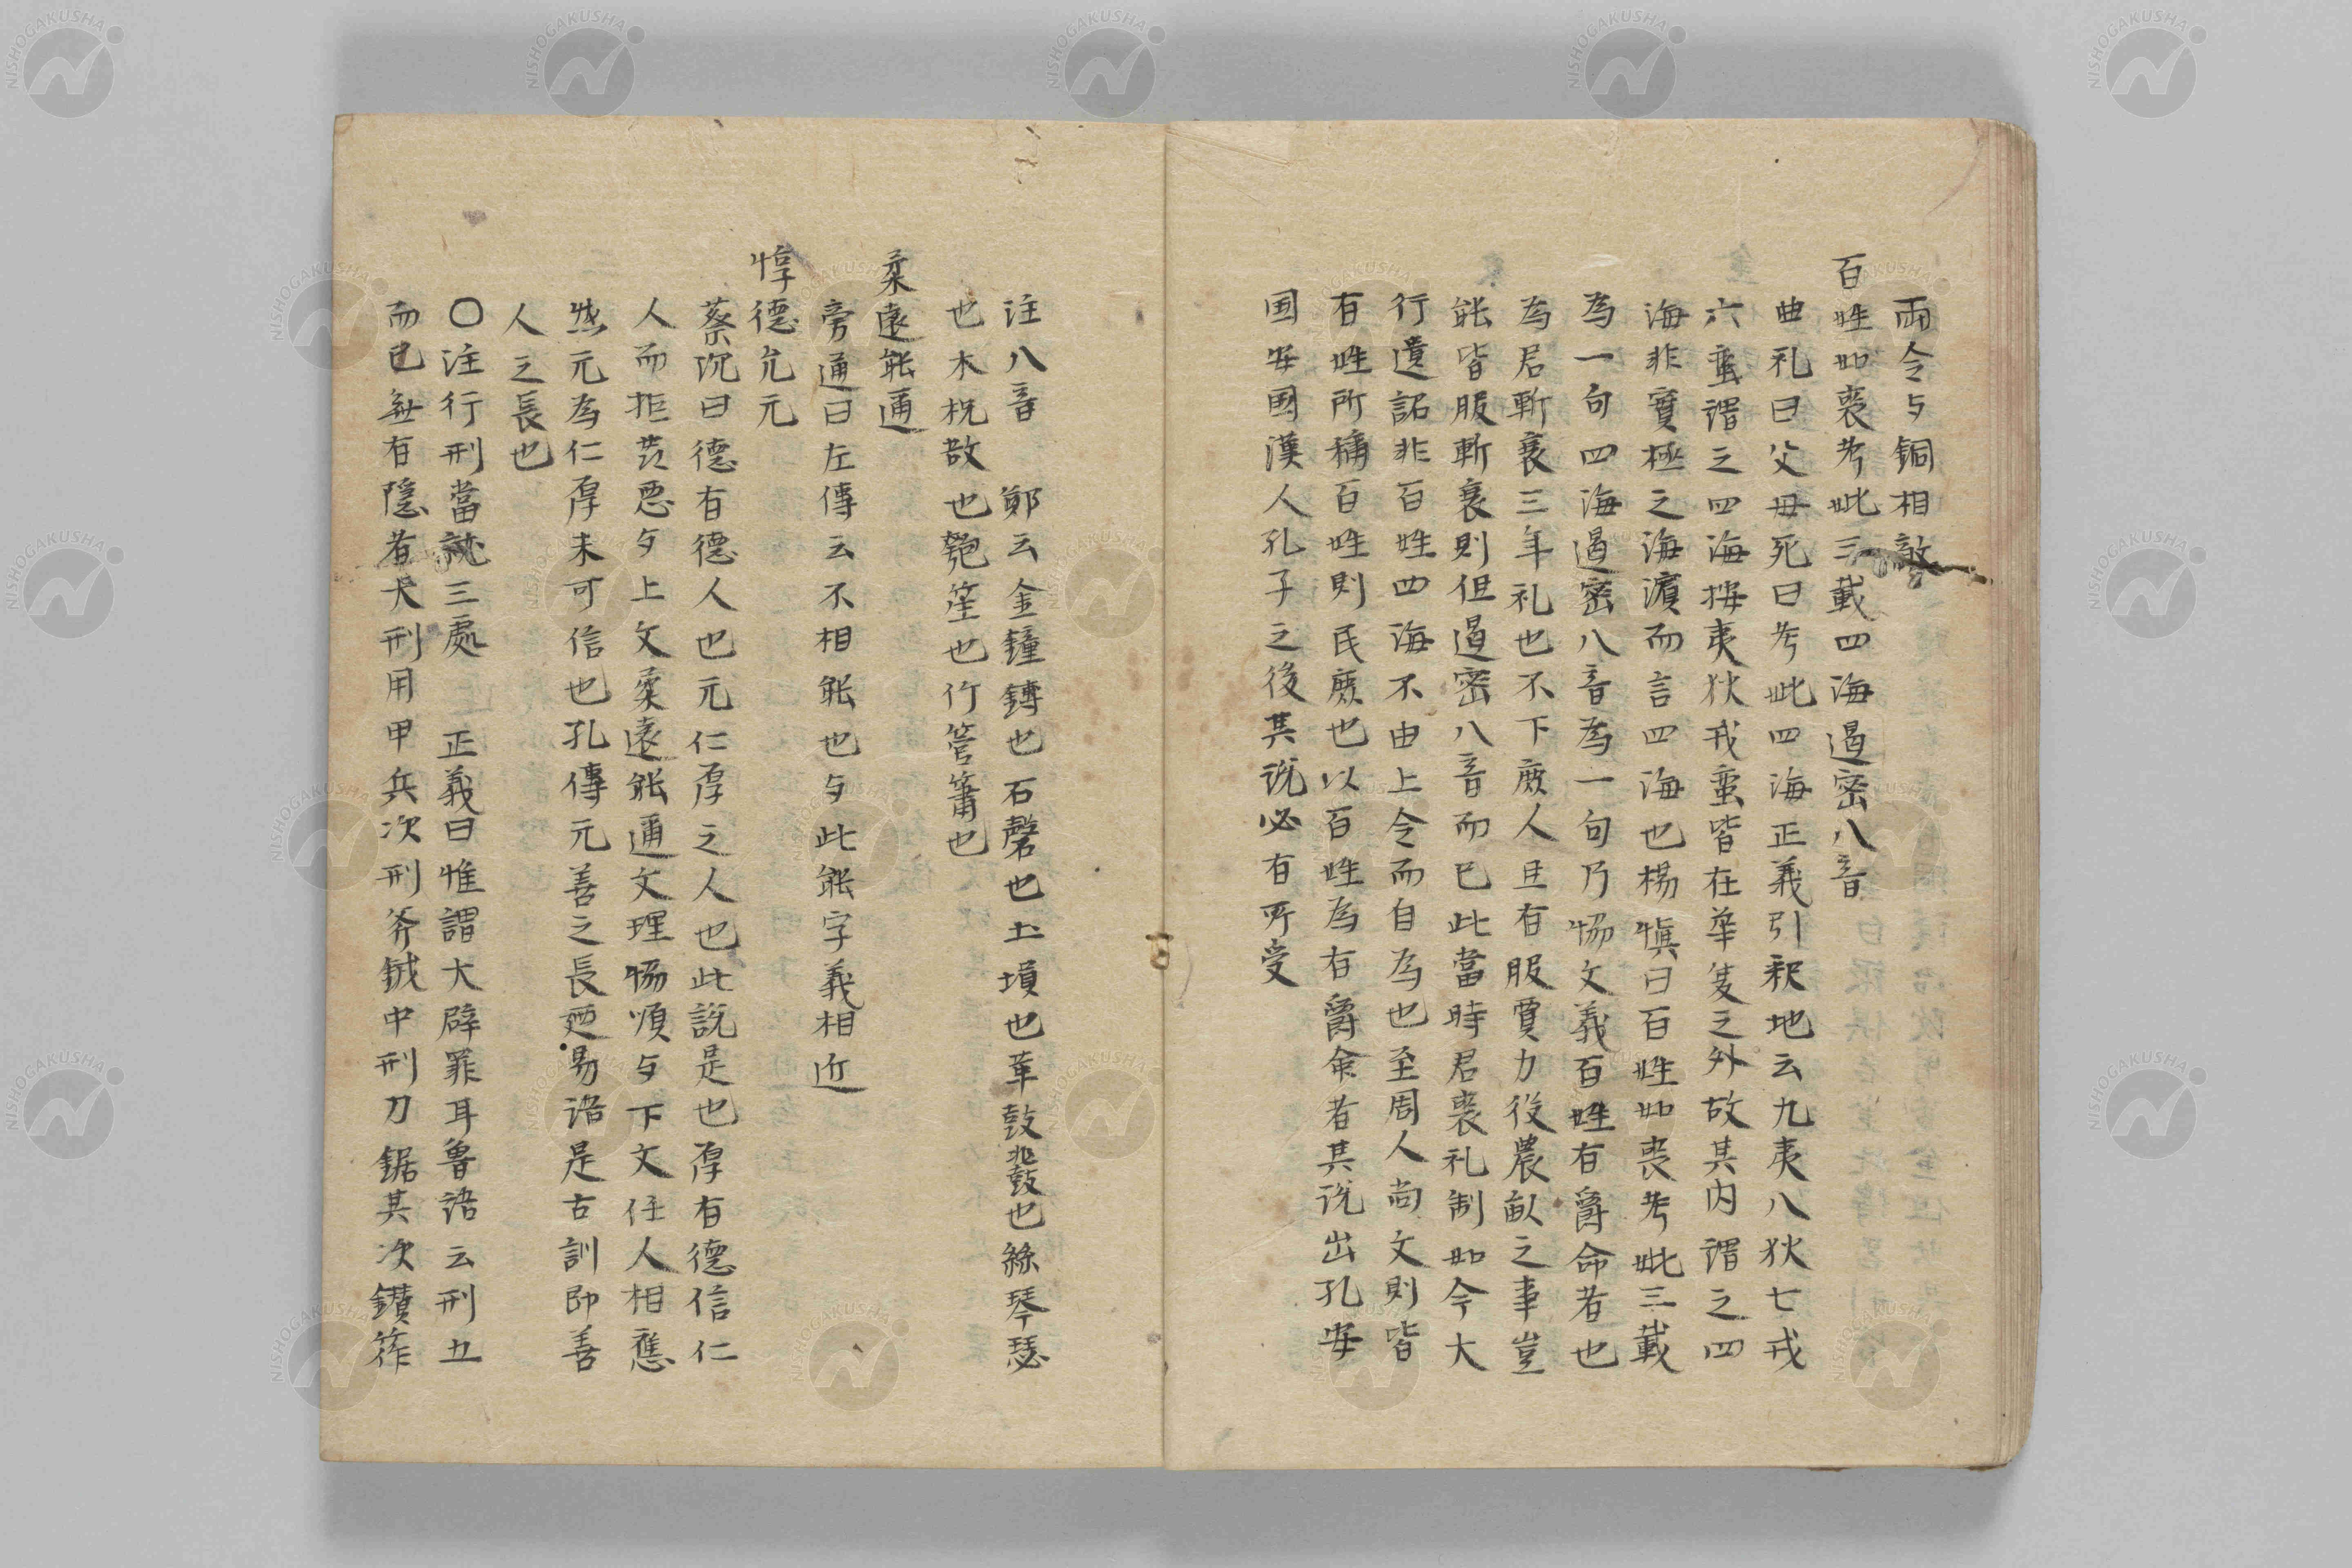 兩令与銅相敵
百姓如喪考妣三載四海遏密八音
曲礼曰父母死曰考妣四海正義引釈地云九夷八狄七戎
六蛮謂之四海按夷狄戎蛮皆在華夏之外故其内謂之四
海非實極之海濱而言四海也楊愼曰百姓如喪考妣三載
為一句四海遏密八音為一句乃恊文義百姓有爵命者也
為君斬衰三年礼也不下庶人且有服賈力役農畝之事豈
能皆服斬衰則但遏密八音而已此當時君喪礼制如今大
行遺詔非百姓四海不由上令而自為也至周人尚文則皆
有姓所稱百姓則民庶也以百姓為有爵命者其说出孔安
国安國漢人孔子之後其说必有所受
注八音 鄭云金鐘鎛也石磬也土塤也革鼓鼗也絲琴瑟
也木柷敔也匏笙也竹管簫也
柔遠能通
旁通曰左傳云不相能也与此能字義相近
惇德允元
蔡沉曰德有德人也元仁厚之人也此説是也厚有德信仁
人而拒荒悪与上文柔遠能邇文理恊順与下文任人相應
然元為仁厚未可信也孔傳元善之長廼易语是古訓即善
人之長也
〇注行刑當就三處 正義曰惟謂大辟罪耳魯语云刑五
而已無有隠者大刑用甲兵次刑斧鉞中刑刀鋸其次鑚笮
NISHOGAKUSHA